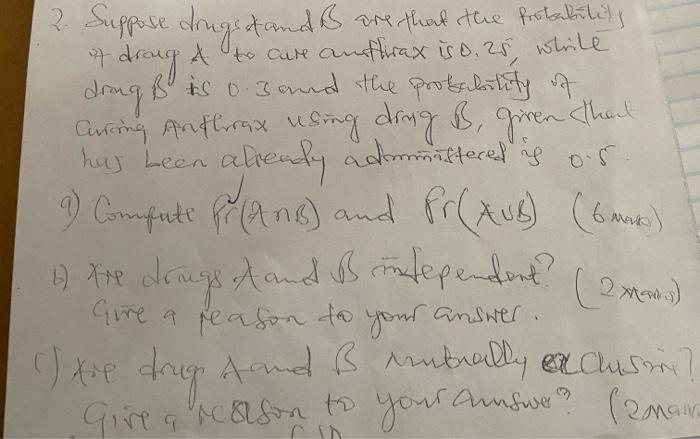 2. Suppose drugs A and B are that the probability
of drug A to cure anthrax is 0.25, while
drug B is 0.3 and the probability of
curing Anthrax using drug B, given that
has been already administered is 0.5.
a) Compute Pr(A∩B) and Pr(A∪B) (6 marks)
b) Are drugs A and B independent? (2 marks)
Give a reason to your answer.
c) Are drug A and B mutually exclusive?
Give a reason to your answer? (2 mar